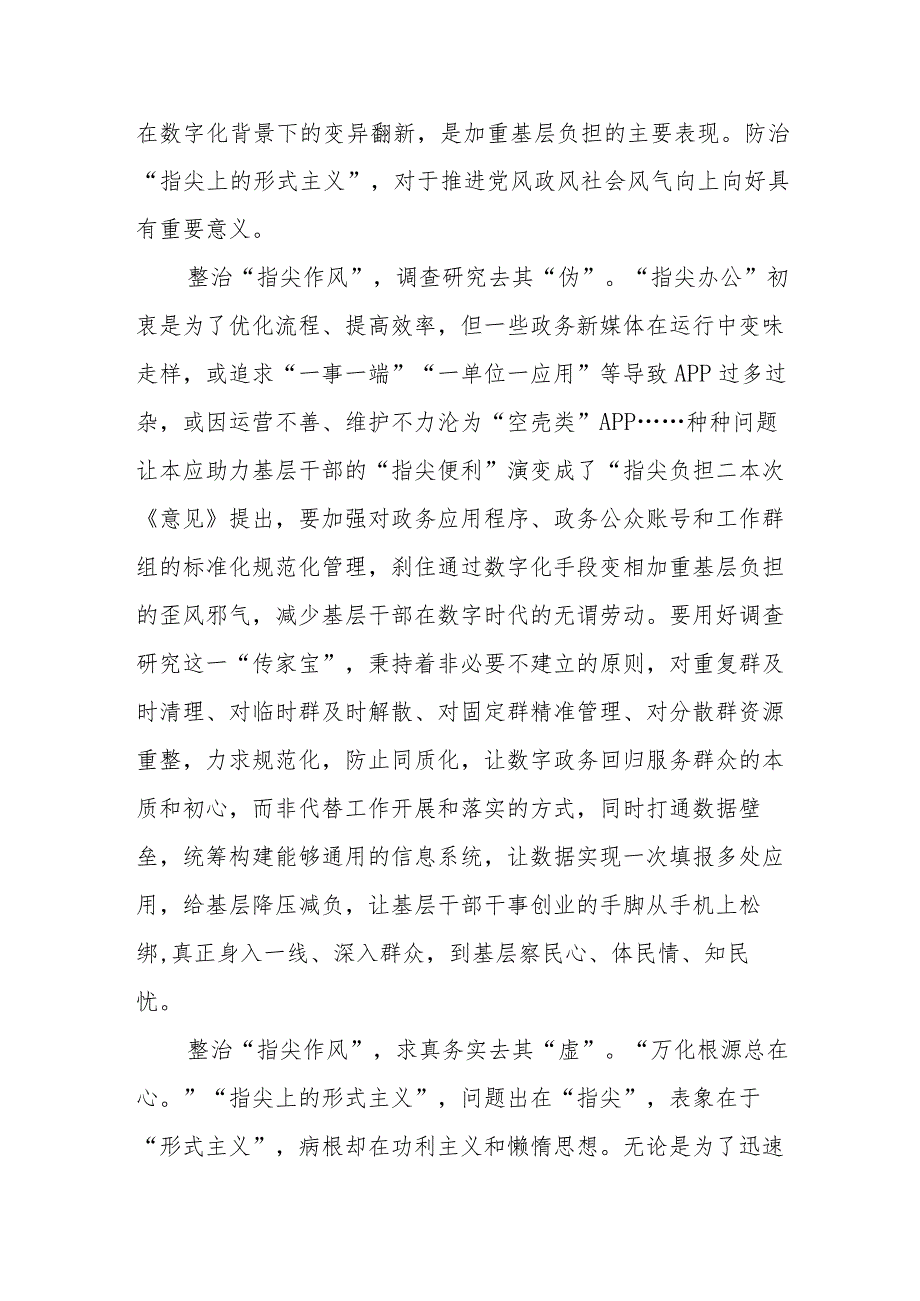 在数字化背景下的变异翻新，是加重基层负担的主要表现。防治
“指尖上的形式主义”，对于推进党风政风社会风气向上向好具
有重要意义。
整治“指尖作风”，调查研究去其“伪”。“指尖办公”初
衷是为了优化流程、提高效率，但一些政务新媒体在运行中变味
走样，或追求“一事一端”“一单位一应用”等导致 APP 过多过
杂，或因运营不善、维护不力沦为“空壳类”APP……种种问题
让本应助力基层干部的“指尖便利”演变成了“指尖负担二本次
《意见》提出，要加强对政务应用程序、政务公众账号和工作群
组的标准化规范化管理，刹住通过数字化手段变相加重基层负担
的歪风邪气，减少基层干部在数字时代的无谓劳动。要用好调查
研究这一“传家宝”，秉持着非必要不建立的原则，对重复群及
时清理、对临时群及时解散、对固定群精准管理、对分散群资源
重整，力求规范化，防止同质化，让数字政务回归服务群众的本
质和初心，而非代替工作开展和落实的方式，同时打通数据壁
垒，统筹构建能够通用的信息系统，让数据实现一次填报多处应
用，给基层降压减负，让基层干部干事创业的手脚从手机上松
绑,真正身入一线、深入群众，到基层察民心、体民情、知民
忧。
整治“指尖作风”，求真务实去其“虚”。“万化根源总在
心。”“指尖上的形式主义”，问题出在“指尖”，表象在于
“形式主义”，病根却在功利主义和懒惰思想。无论是为了迅速